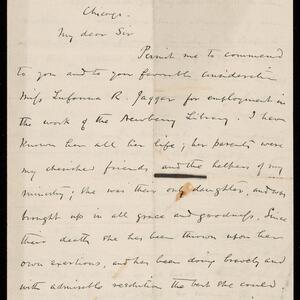 Chicago.
My dear Sir
Permit me to commend
to you and to your favorable consideration
Miss R. Jaggar for employment in
the work of the Newberry Library. I have
known her all her life; her parents were
my cherished friends and the helpers of my
ministry; she was their only daughter, and was
brought up in all grace and goodness. Since
their death she has been thrown upon her
own exertions, and has been doing bravely and
with admirable resolution the best she could;